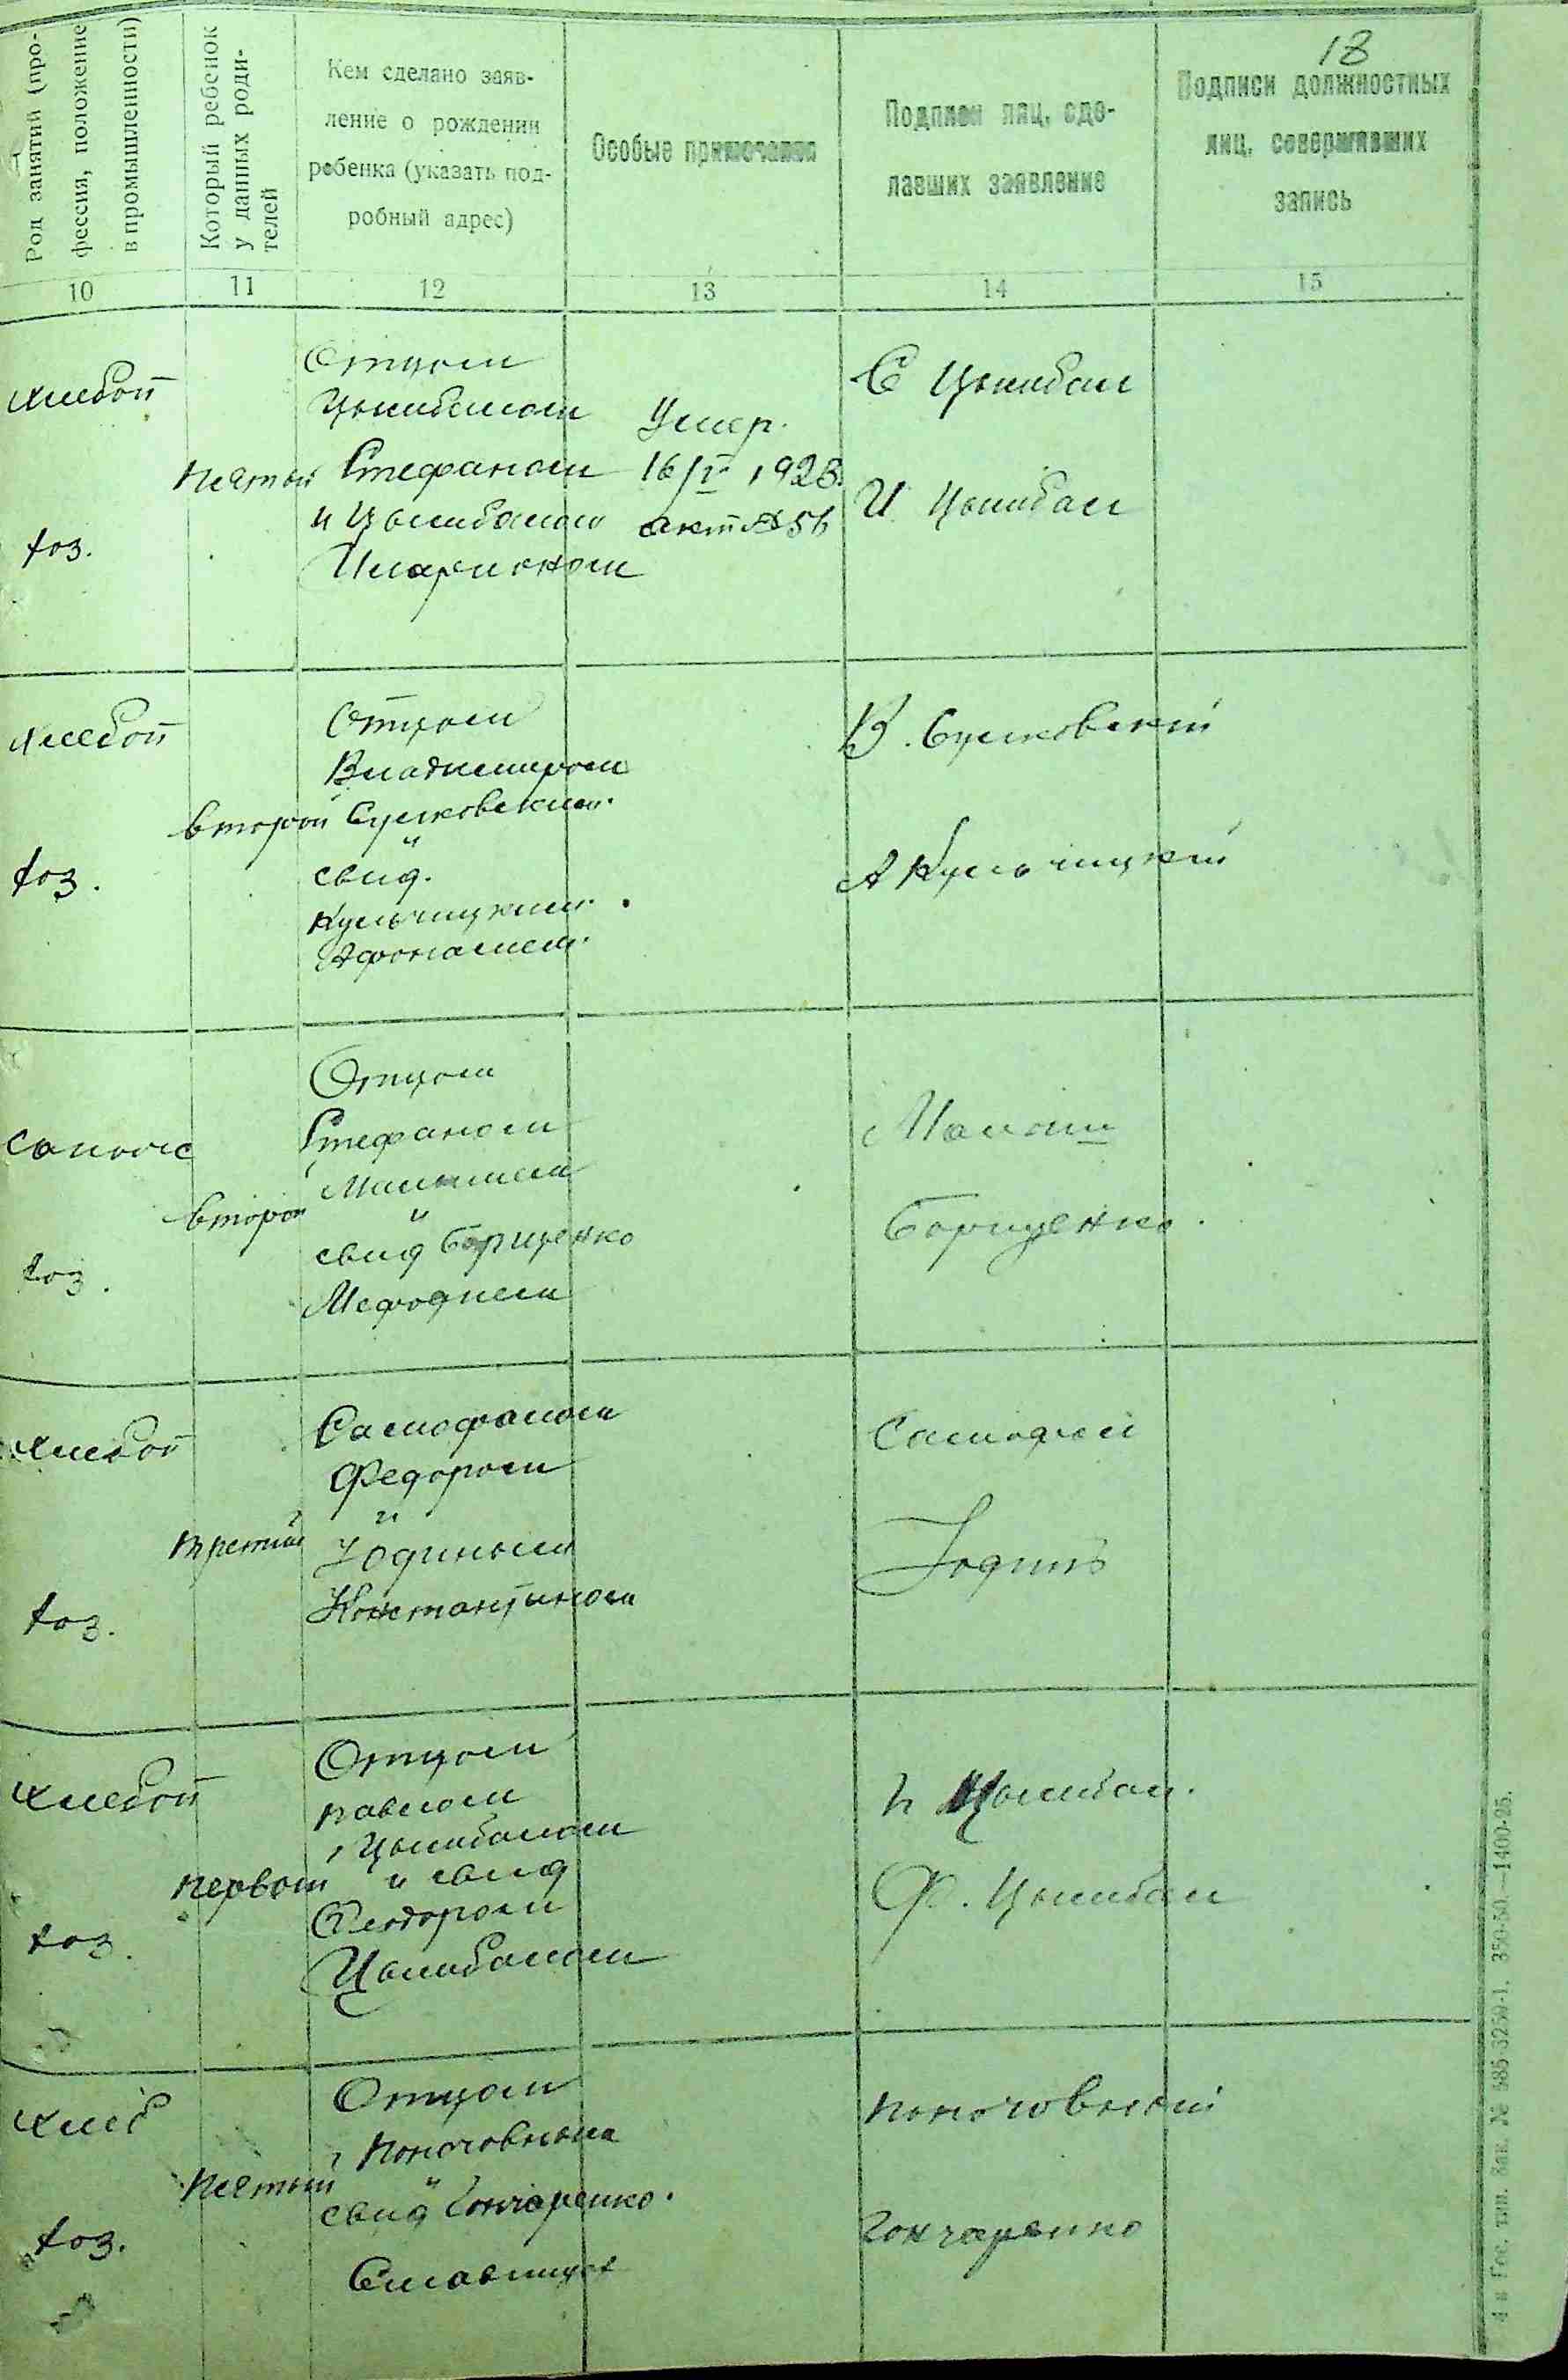 18
Род занятий (про-
фессия, положение
в промышленности)
Который ребенок
у данных роди-
телей
Кем сделано заяв-
ление о рождении
ребенка (указать под-
робный адрес)
Особые примечания
Подписи лиц, сде-
лавших заявление
Подписи должностных
лиц, совершавших
запись
10
11
12
13
14
15
хлебоп
хоз.
пятый
Отцом
Цымбалом
Стефаном
и Цымбалом
Иларионом
Умер.
16/V 1928.
акт № 56
С Цымбал
И Цымбал
хлебоп
хоз.
второй
Отцом
Владимиром
Сулковским
и
свид.
Кульчицким
Афонасием
В. Сулковский
А Кульчицкий
сапож
хоз.
второй
Отцом
Стефаном
и
свид Борищенко
Мефодием
Борищенко.
хлебоп
хоз.
третий
Самофалом
Федором
и
Юдиным
Константином
Самофал
Юдинъ
хлебоп
хоз.
первый
Отцом
павлом
Цымбалом
и свид
Феодором
Цымбалом
П Цымбал.
Ф. Цымбал
хлеб
хоз.
пятый
Отцом
и
свид Гончаренко.
Гончаренко
4-я Гос. тип. Зак. № 585-3259-1. 350-50.—1400-25.